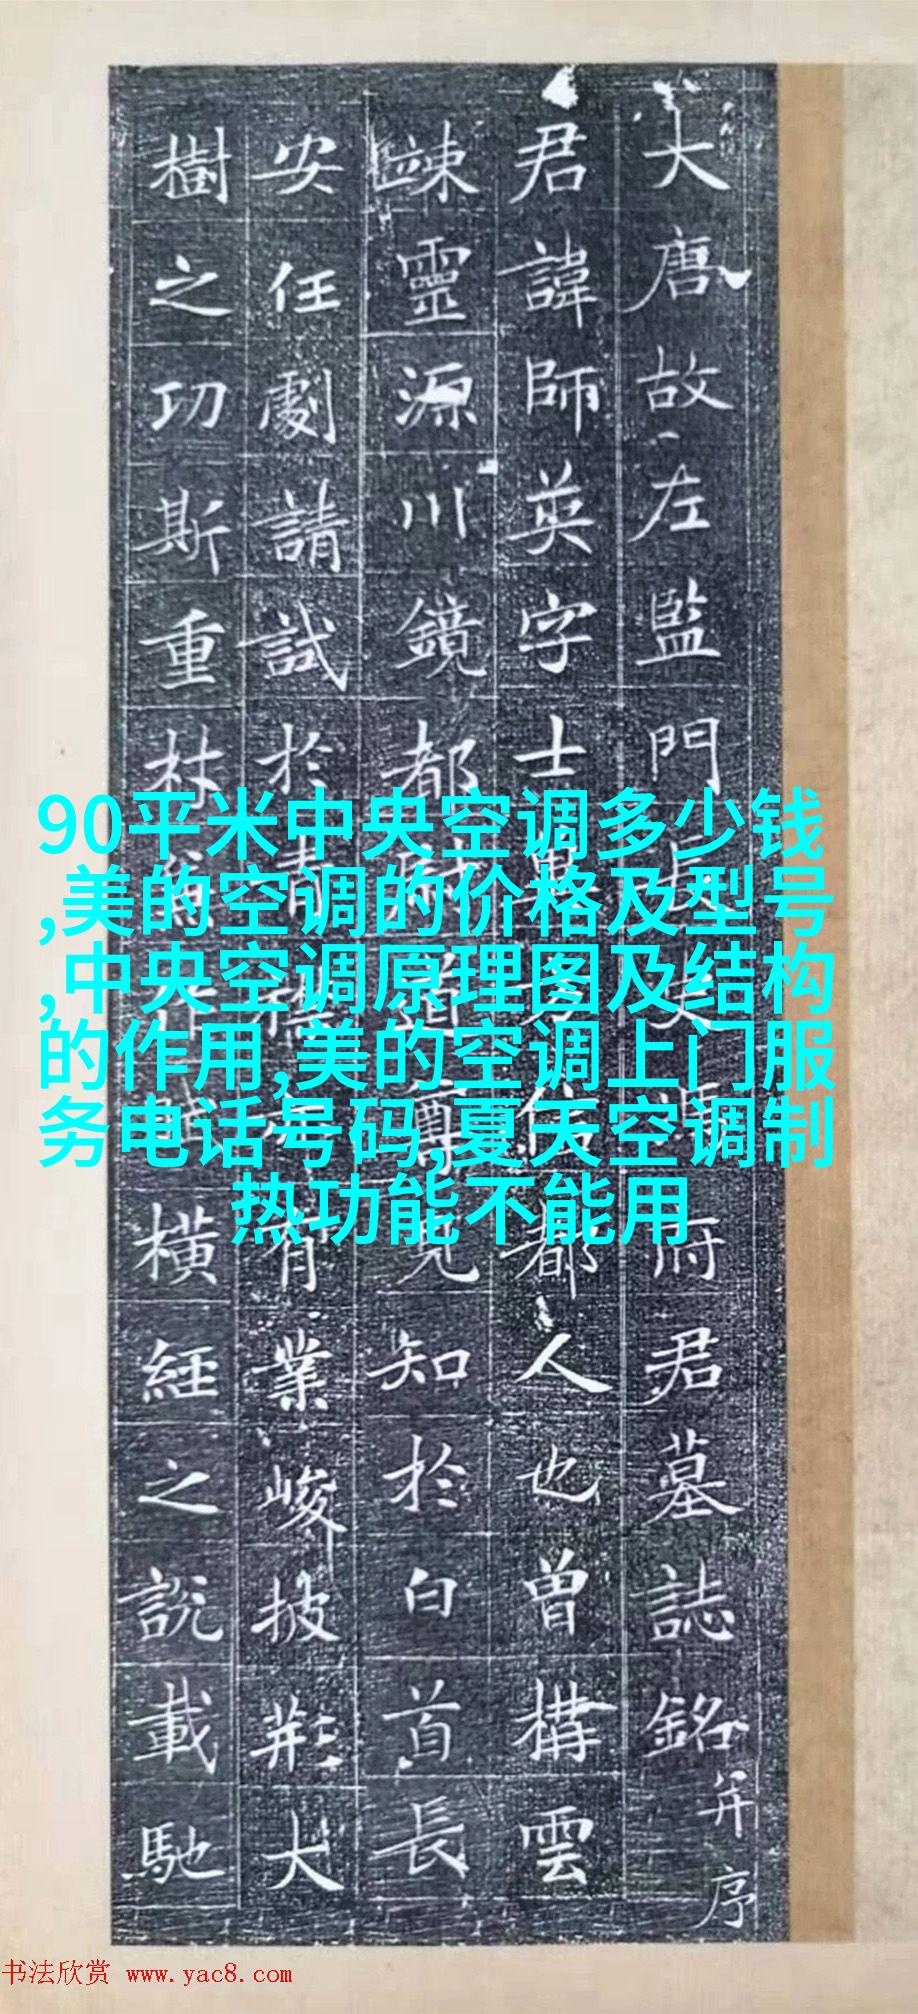 大唐故左監門府君墓誌銘并序
君諱師英字士都人也曾構雲
竦靈源川鏡都見知於白首長
安任劇請試於有業峻披荊大
樹之功斯重橫經之說載馳
90平米中央空调多少钱
,美的空调的价格及型号
,中央空调原理图及结构
的作用,美的空调上门服
务电话号码,夏天空调制
热功能不能用
书法欣赏 www.yac8.com